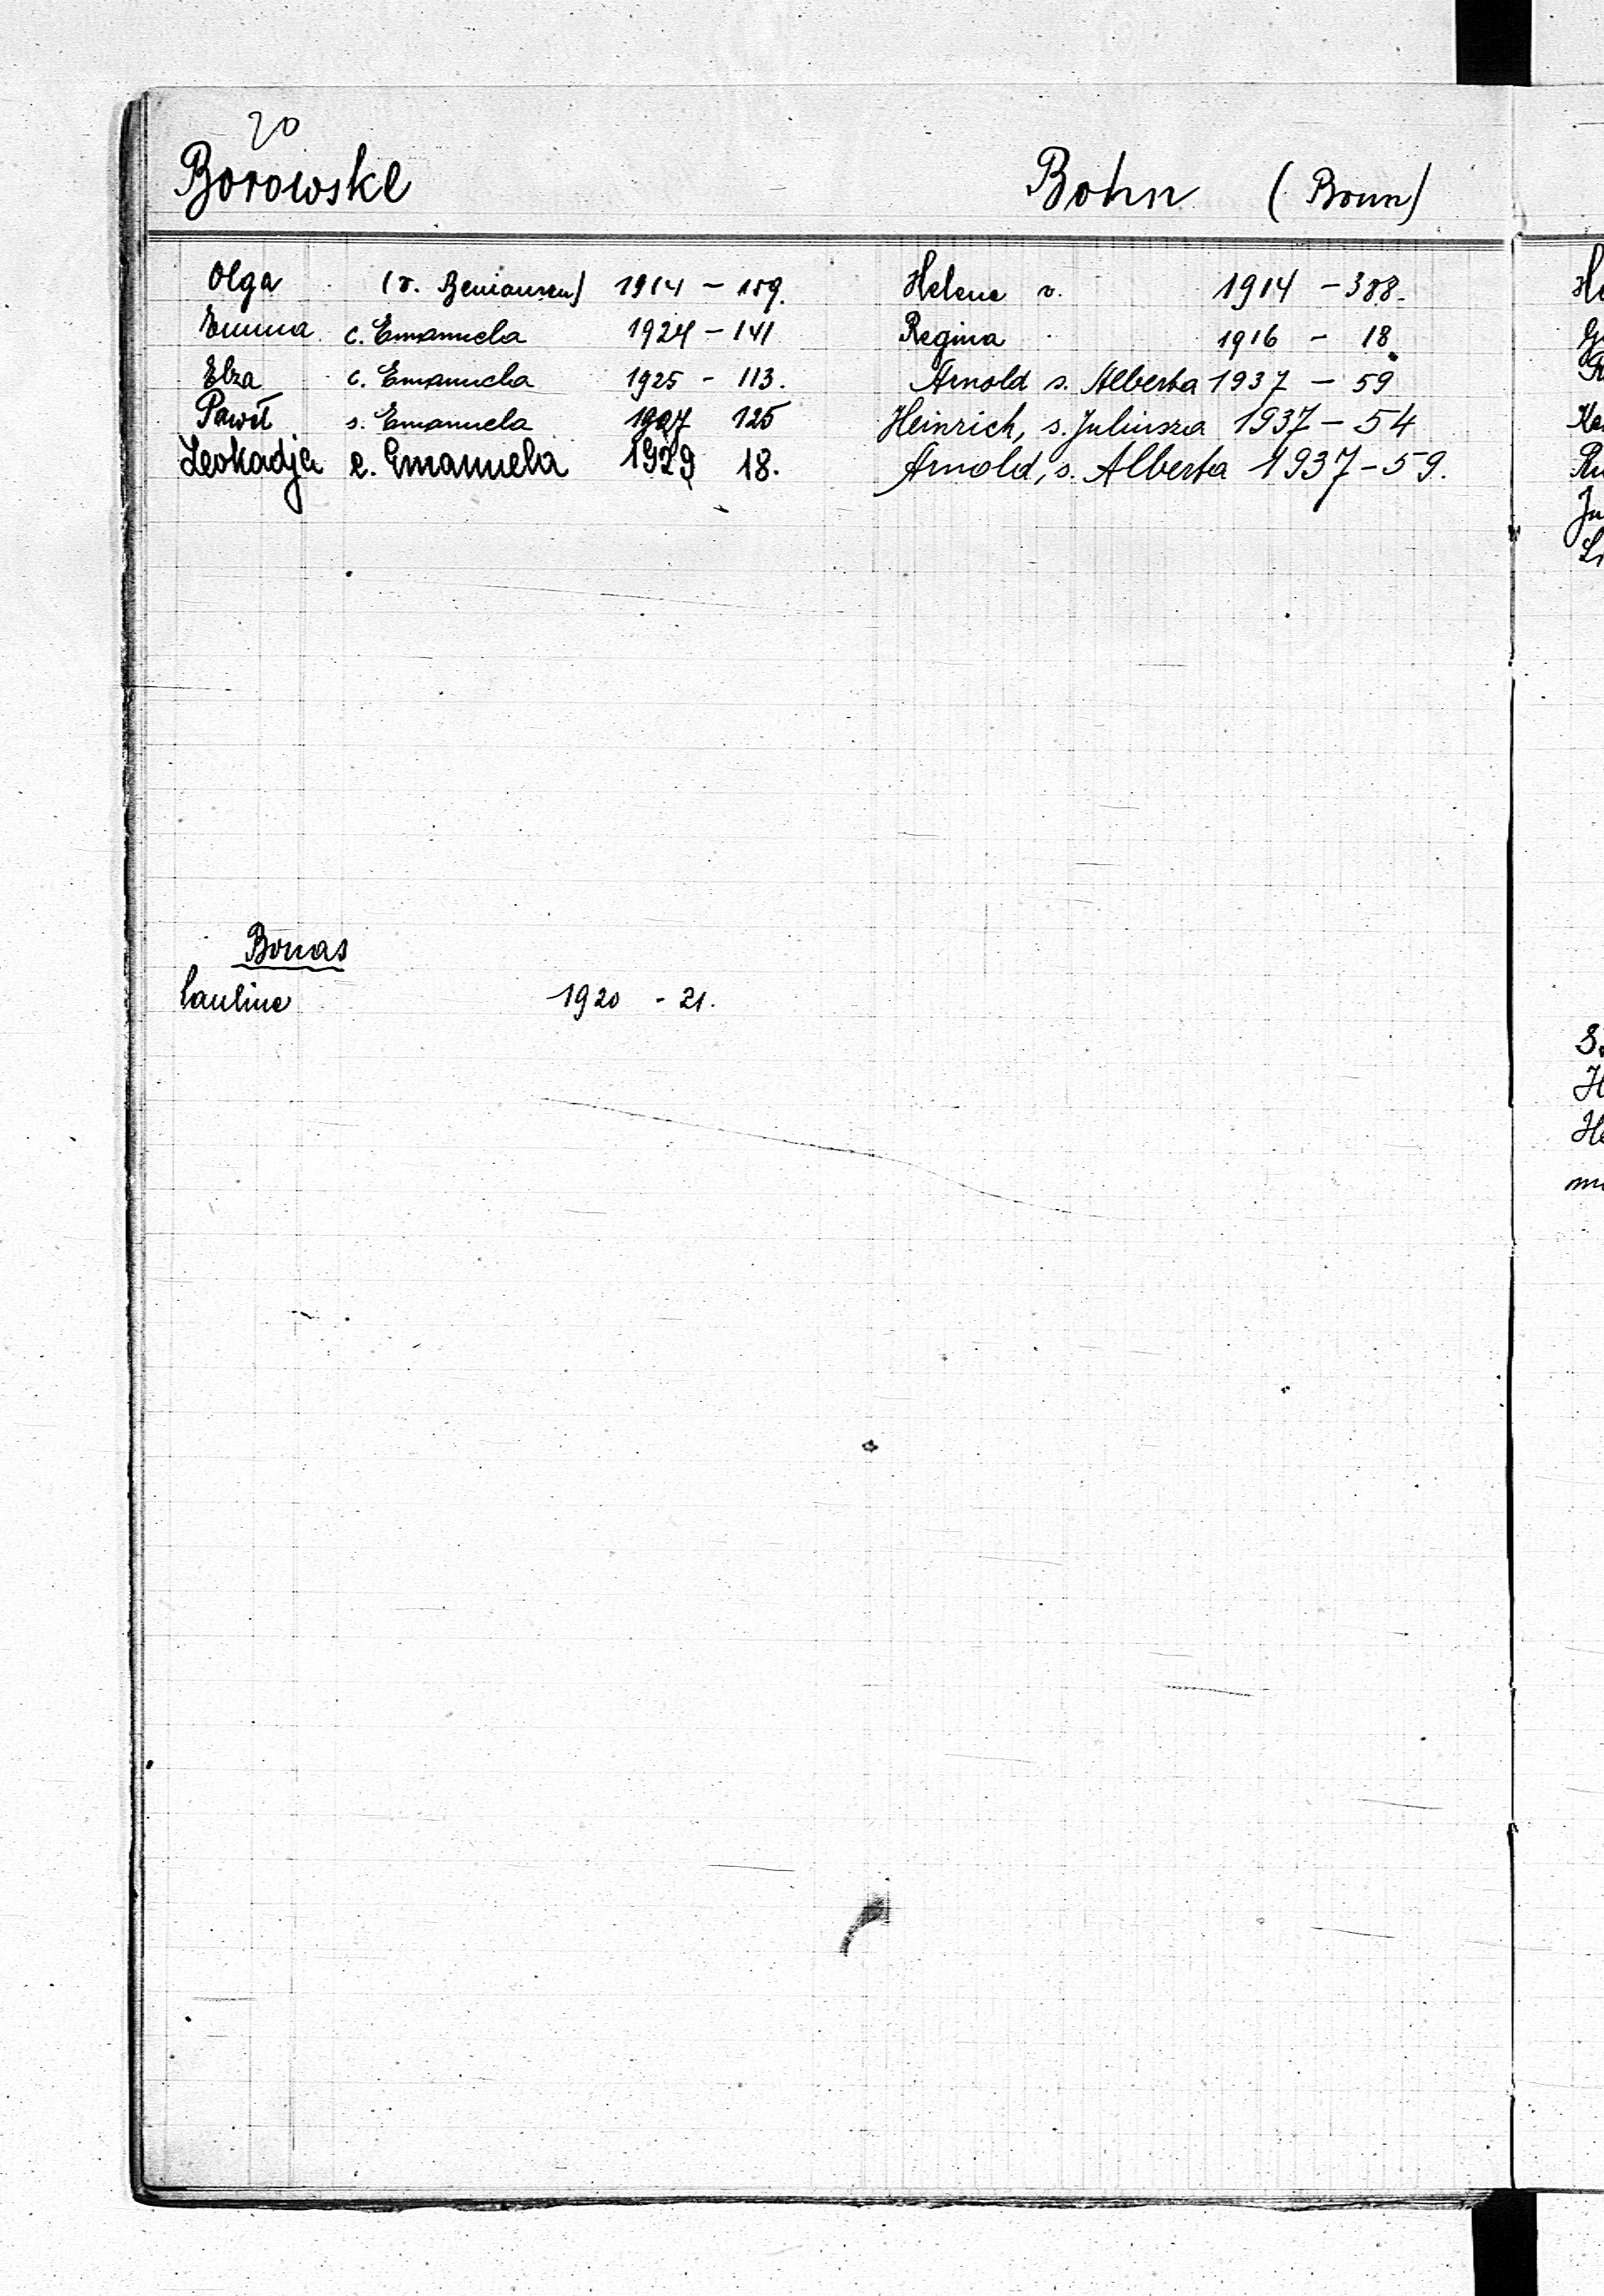 20
Borowske
Olga 1914 - 189.
Emma c. Emanuela 1924 - 141
Elza c. Emanuela 1925 - 113.
Paweł s. Emanuela 1927 125
Leokadja c. Emanuela 1929 18.
Bonas
Pauline 1920 - 21.
Bohn (Bonn)
Helene v. 1914 - 388.
Regina 1916 - 18
Arnold s. Alberta 1937 - 59
Heinrich, s. Juliusza 1937 - 54
Arnold, s. Alberta 1937 - 59.